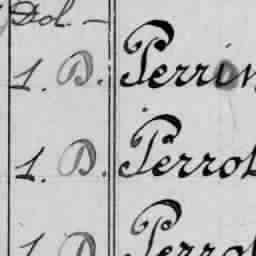 Dol. —
1. D. Perrin
1. D. Perrot
1. D. Perrot